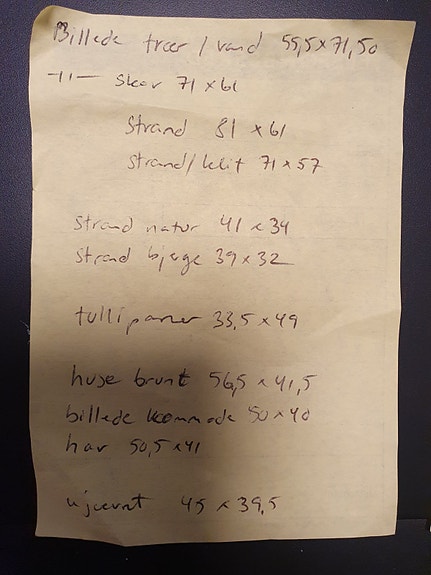 Billede træer / vand 55,5 x 71,50
-11- skov 71 x 61
Strand 81 x 61
Strand / klit 71 x 57
Strand natur 41 x 34
Strand bjerge 39 x 32
tullipaner 33,5 x 49
huse brunt 56,5 x 41,5
billede kommode 50 x 40
hav 50,5 x 41
ujævnt 45 x 39,5